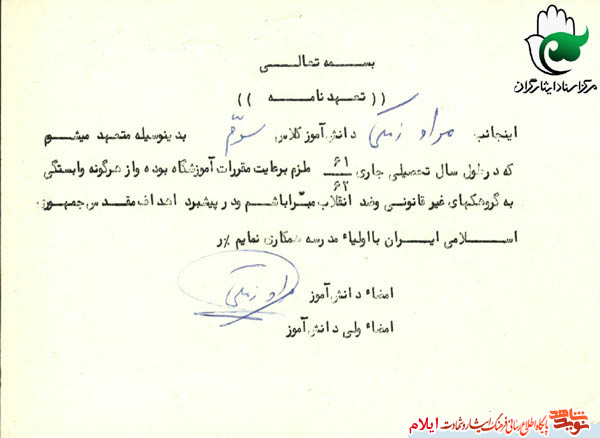 مرکز اسناد ایثارگران
بسمه تعالی
((تعهد نامه))
اینجانب مراد زمکی دانش آموز کلاس سوم بدینوسیله متعهد میشوم
که در طول سال تحصیلی جاری ۶۱/۶۲ ملزم برعایت مقررات آموزشگاه بوده و از هرگونه وابستگی
به گروهکهای غیر قانونی وضد انقلاب مبّرا باشم و در پیشبرد اهداف مقدس جمهوری
اسلامی ایران با اولیاء مدرسه همکاری نمایم ٪ر
امضاء دانش آموز مراد زمکی
امضاء ولی دانش آموز
نوید شاهد پایگاه اطلاع رسانی فرهنگ ایثار و شهادت ایلام